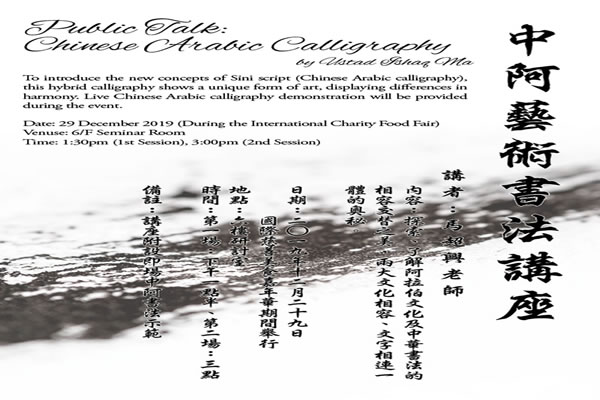 Public Talk:
Chinese Arabic Calligraphy
by Ustad Ishaq Ma
To introduce the new concepts of Sini script (Chinese Arabic calligraphy),
this hybrid calligraphy shows a unique form of art, displaying differences in
harmony. Live Chinese Arabic calligraphy demonstration will be provided
during the event.
Date: 29 December 2019 (During the International Charity Food Fair)
Venuse: 6/F Seminar Room
Time: 1:30pm (1st Session), 3:00pm (2nd Session)
中阿藝術書法講座
講者：馬超興老師
內容：探索、了解阿拉伯文化及中華書法的
相容交替之美、兩大文化相容、文字相連一
體的奧秘。
日期：二〇一九年十二月二十九日
國際慈善美食嘉年華期間舉行
地點：六樓研討室
時間：第一場：下午一點半、第二場：三點
備註：講座附設即場中阿書法示範